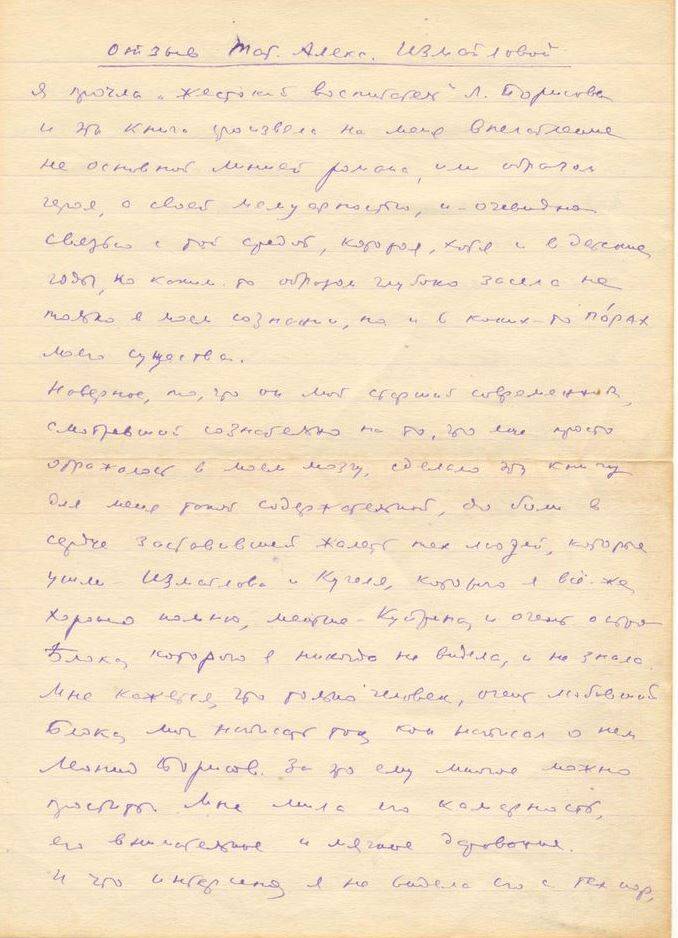 Отзыв Тат. Алекс. Измайловой
Я прочла "Жестокий воспитатель" Л. Борисова
и эта книга произвела на меня впечатление
не основной линией романа, или образом
героя, а своей мемуарностью, и очевидно
связью с той средой, которая, хотя и в детские
годы, но каким-то образом глубоко засела не
только в моем сознании, но и в каких-то по́рах
моего существа.
Наверное, то, что он мой старший современник,
смотревший сознательно на то, что мне просто
отражалось в моем мозгу, сделало эту книгу
для меня такой содержательной, до боли в
сердце заставившей жалеть тех людей, которые
ушли - Измайлова и Кугеля, которого я всё-же
хорошо помню, меньше - Куприна, и очень остро
Блока, которого я никогда не видела, и не знала.
Мне кажется, что только человек, очень любивший
Блока, мог написать так, как написал о нем
Леонид Борисов. За это ему многое можно
простить. Мне мила его камерность,
его внимательное и мягкое дарование.
И что интересно, я не видела его с тех пор,